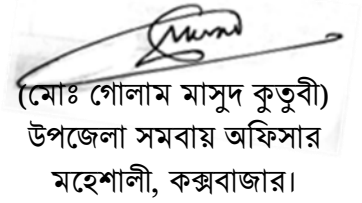 (মোঃ গোলাম মাসুদ কুতুবী)
উপজেলা সমবায় অফিসার
মহেশালী, কক্সবাজার।